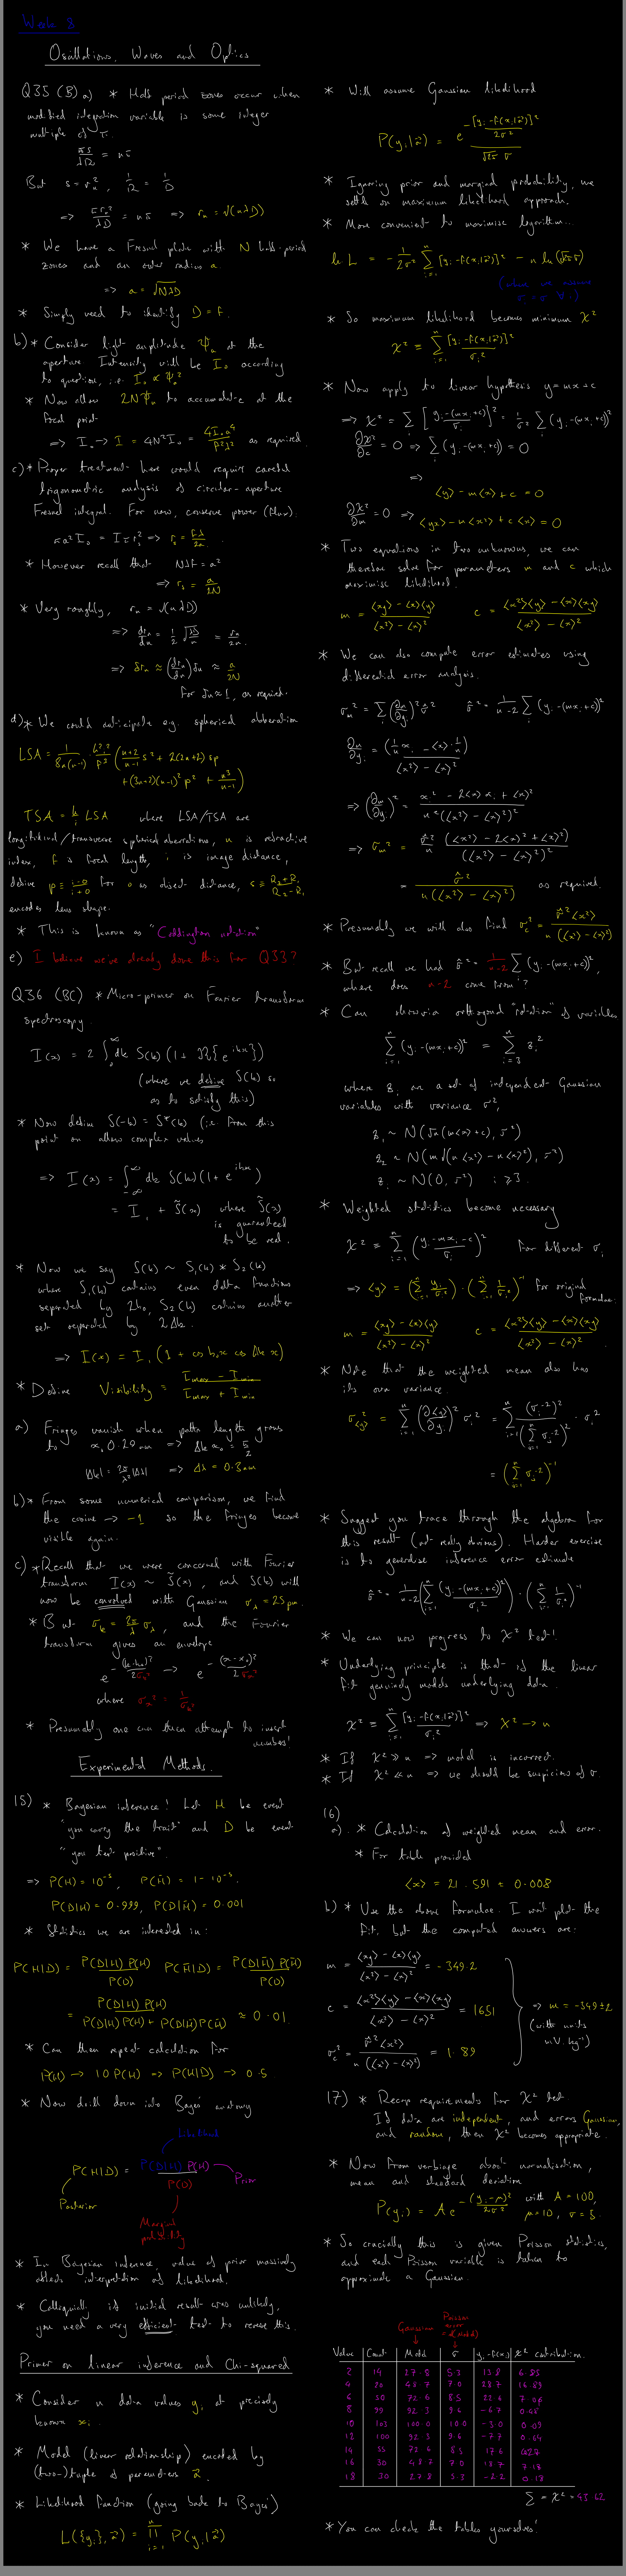 Week 3
Oscillations, Waves and Optics
Q35 (B) a) * Half period zones occur when
modified integration variable is some integer
multiple of π.
πs/λR = nπ
But s = rₙ², 1/R = 1/D
=> πrₙ²/λD = nπ => rₙ = √(nλD)
* We have a Fresnel plate with N half-period
zones and an outer radius a.
=> a = √NλD
* Simply need to identify D = f.
b) * Consider light amplitude Ψ₀ at the
aperture. Intensity will be I₀ according
to question, i.e. I₀ ∝ Ψ₀²
* Now allow 2NΨ₀ to accumulate at the
focal point
=> I₀ → I = 4N²I₀ = 4I₀a⁴/f²λ² as required.
c) * Proper treatment here would require careful
trigonometric analysis of circular-aperture
Fresnel integral. For now, conserve power (flux).
πa²I₀ = Iπrₛ² => rₛ = fλ/2a.
* However recall that Nλf = a²
=> rₛ = a/2N
* Very roughly, rₙ = √(nλD)
=> drₙ/dn = 1/2 √(λD/n) = rₙ/2n.
=> δrₙ ≈ (drₙ/dn) δn ≈ a/2N
for δn ≈ 1, as required.
d) * We could anticipate e.g. spherical abberation
where LSA/TSA are
longitudinal/transverse spherical aberations, n is refractive
index, f is focal length, i is image distance,
define p ≡ (i-o)/(i+o) for o as object distance, s ≡ (R₂+R₁)/(R₂-R₁)
encodes lens shape.
* This is known as "Coddington notation"
e) I believe we've already done this for Q33?
Q36 (BC) * Micro-primer on Fourier transform
spectroscopy.
I(x) = 2 ∫₀^∞ dk S(k) (1 + ℜ{e^{ikx}})
(where we define S(k) so
as to satisfy this)
* Now define S(-k) = S*(k) (i.e. from this
point on allow complex values
=> I(x) = ∫_{-∞}^{∞} dk S(k)(1 + e^{ikx})
= I₁ + S̃(x) where S̃(x)
is guaranteed
to be real.
* Now we say S(k) ~ S₁(k) * S₂(k)
where S₁(k) contains even delta functions
separated by 2k₀, S₂(k) contains another
set separated by 2Δk.
=> I(x) = I₁ (1 + cos k₀x cos Δk x)
* Define Visibility = (Imax - Imin)/(Imax + Imin)
a) Fringes vanish when path length grows
=> Δλ = 0.3 nm
b) * From some numerical comparison, we find
the cosine → -1 so the fringes become
visible again.
c) * Recall that we were concerned with Fourier
transform I(x) ~ S̃(x), and S(k) will
now be convolved with Gaussian σ_λ = 25 pm.
* But σ_k = 2π/λ² σ_λ, and the Fourier
transform gives an envelope
e^{-(k-k₀)²/2σ_k²} → e^{-(x-x₀)²/2σ_x²}
where σ_x² = 1/σ_k²
* Presumably one can then attempt to insert
numbers!
Experimental Methods.
15) * Bayesian inference! Let H be event
"you carry the trait" and D be event
"you test positive".
=> P(H) = 10⁻⁵, P(H̄) = 1 - 10⁻⁵.
P(D|H) = 0.999, P(D|H̄) = 0.001
* Statistics we are interested in:
P(H|D) = P(D|H)P(H)/P(D) P(H̄|D) = P(D|H̄)P(H̄)/P(D)
= P(D|H)P(H)/(P(D|H)P(H) + P(D|H̄)P(H̄)) ≈ 0.01.
* Can then repeat calculation for
P(H) → 10 P(H) => P(H|D) → 0.5
* Now drill down into Bayes' anatomy
Likelihood
P(H|D) = P(D|H) P(H)/P(D)
Prior
Posterior
Marginal
probability
* In Bayesian inference, value of prior massively
affects interpretation of likelihood.
* Colloquially, if initial result was unlikely,
you need a very efficient test to reverse this.
Primer on linear inference and Chi-squared
* Consider n data values yᵢ at precisely
known xᵢ.
* Model (linear relationship) encoded by
(two-)tuple of parameters a⃗.
* Likelihood function (going back to Bayes')
L({yᵢ}, a⃗) = ∏ᵢ₌₁ⁿ P(yᵢ|a⃗)
* Will assume Gaussian likelihood
P(yᵢ|a⃗) = e^{-[yᵢ-f(xᵢ|a⃗)]²/2σ²}/√2π σ
* Ignoring prior and marginal probability, we
settle on maximum likelihood approach.
* More convenient to maximise logarithm...
ln L = -1/2σ² Σᵢ₌₁ⁿ [yᵢ-f(xᵢ|a⃗)]² - n ln(√2π σ)
(where we assume
σᵢ = σ ∀ i)
* So maximum likelihood becomes minimum χ²
χ² ≡ Σᵢ₌₁ⁿ [yᵢ-f(xᵢ|a⃗)]²/σᵢ²
* Now apply to linear hypothesis y = mx + c
=> χ² = Σᵢ [yᵢ-(mxᵢ+c)/σ]² = 1/σ² Σᵢ (yᵢ-(mxᵢ+c))²
∂χ²/∂c = 0 => Σᵢ (yᵢ-(mxᵢ+c)) = 0
=>
<y> - m<x> + c = 0
∂χ²/∂m = 0 => <yx> - m<x²> + c<x> = 0
* Two equations in two unknowns, we can
therefore solve for parameters m and c which
maximise likelihood.
m = (<xy> - <x><y>)/(<x²> - <x>²) c = (<x²><y> - <x><xy>)/(<x²> - <x>²)
* We can also compute error estimates using
differential error analysis.
σₘ² = Σᵢ (∂m/∂yᵢ)² σ̂² σ̂² = 1/(n-2) Σᵢ (yᵢ-(mxᵢ+c))²
∂m/∂yᵢ = (1/n xᵢ - <x> 1/n)/(<x²> - <x>²)
=> (∂m/∂yᵢ)² = (xᵢ² - 2<x>xᵢ + <x>²)/n²(<x²> - <x>²)²
=> σₘ² = σ̂²/n (<x²> - 2<x>² + <x>²)/(<x²> - <x>²)²
= σ̂²/n(<x²> - <x>²) as required.
* Presumably we will also find σ_c² = σ̂²<x²>/n(<x²> - <x>²)
* But recall we had σ̂² = 1/(n-2) Σ (yᵢ-(mxᵢ+c))²,
where does n-2 come from?
* Can show via orthogonal "rotation" of variables
Σᵢ₌₁ⁿ (yᵢ-(mxᵢ+c))² = Σᵢ₌₃ⁿ zᵢ²
where zᵢ are a set of independent Gaussian
variables with variance σ²,
z₁ ~ N(√n(m<x>+c), σ²)
zᵢ ~ N(0, σ²) i ≥ 3.
* Weighted statistics become necessary
χ² ≡ Σᵢ₌₁ⁿ (yᵢ-mxᵢ-c/σᵢ)² for different σᵢ
=> <y> = (Σᵢ₌₁ⁿ yᵢ/σᵢ²) · (Σᵢ₌₁ⁿ 1/σᵢ²)⁻¹ for original
formulae.
m = (<xy> - <x><y>)/(<x²> - <x>²) c = (<x²><y> - <x><xy>)/(<x²> - <x>²).
* Note that the weighted mean also has
its own variance.
σ_<y>² = Σᵢ₌₁ⁿ (∂<y>/∂yᵢ)² σᵢ² = Σᵢ₌₁ⁿ (σᵢ⁻²)²/(Σⱼ₌₁ⁿ σⱼ⁻²)² · σᵢ²
= (Σⱼ₌₁ⁿ σⱼ⁻²)⁻¹
* Suggest you trace through the algebra for
this result (not really obvious). Harder exercise
is to generalise inference error estimate
σ̂² = 1/(n-2) (Σᵢ₌₁ⁿ (yᵢ-(mxᵢ+c))²/σᵢ²) · (Σᵢ₌₁ⁿ 1/σᵢ²)⁻¹
* We can now progress to χ² test!
* Underlying principle is that if the linear
fit genuinely models underlying data.
χ² ≡ Σᵢ₌₁ⁿ [yᵢ-f(xᵢ|a⃗)]²/σᵢ² => χ² → n
* If χ² ≫ n => model is incorrect.
* If χ² ≪ n => we should be suspicious of σ.
16)
a). * Calculation of weighted mean and error.
* For table provided
<x> = 21.591 ± 0.008
b) * Use the above formulae. I won't plot the
fit, but the computed answers are:
m = (<xy> - <x><y>)/(<x²> - <x>²) = -349.2
c = (<x²><y> - <x><xy>)/(<x²> - <x>²) = 1651
σ_c² = σ̂²<x²>/n(<x²> - <x>²) = 1.89
=> m = -349±2
(with units
mV kg⁻¹)
17) * Recap requirements for χ² test.
If data are independent, and errors Gaussian,
and random, then χ² becomes appropriate.
* Now from verbiage about normalisation,
mean and standard deviation
P(yᵢ) = A e^{-(yᵢ-μ)²/2σ²} with A = 100,
μ = 10, σ = 5.
* So crucially this is given Poisson statistics,
and each Poisson variable is taken to
approximate a Gaussian.
Gaussian
Poisson
error
= √(Model)
Value Count Model σ yᵢ-f(xᵢ) χ² contribution.
2 14 27.8 5.3
4 20 48.7 7.0
6 50 72.6 8.5 22.6 7.04
8 99 92.3 9.6 -6.7
10 103 100.0 10.0 -3.0 0.09
12 100 92.3 9.6 -7.7 0.64
14 55 72.6 8.5 17.6 4.27
16 30 48.7 7.0 18.7 7.18
18 30 27.8 5.3 -2.2
Σ = χ² = 43.62
* You can check the tables yourselves!